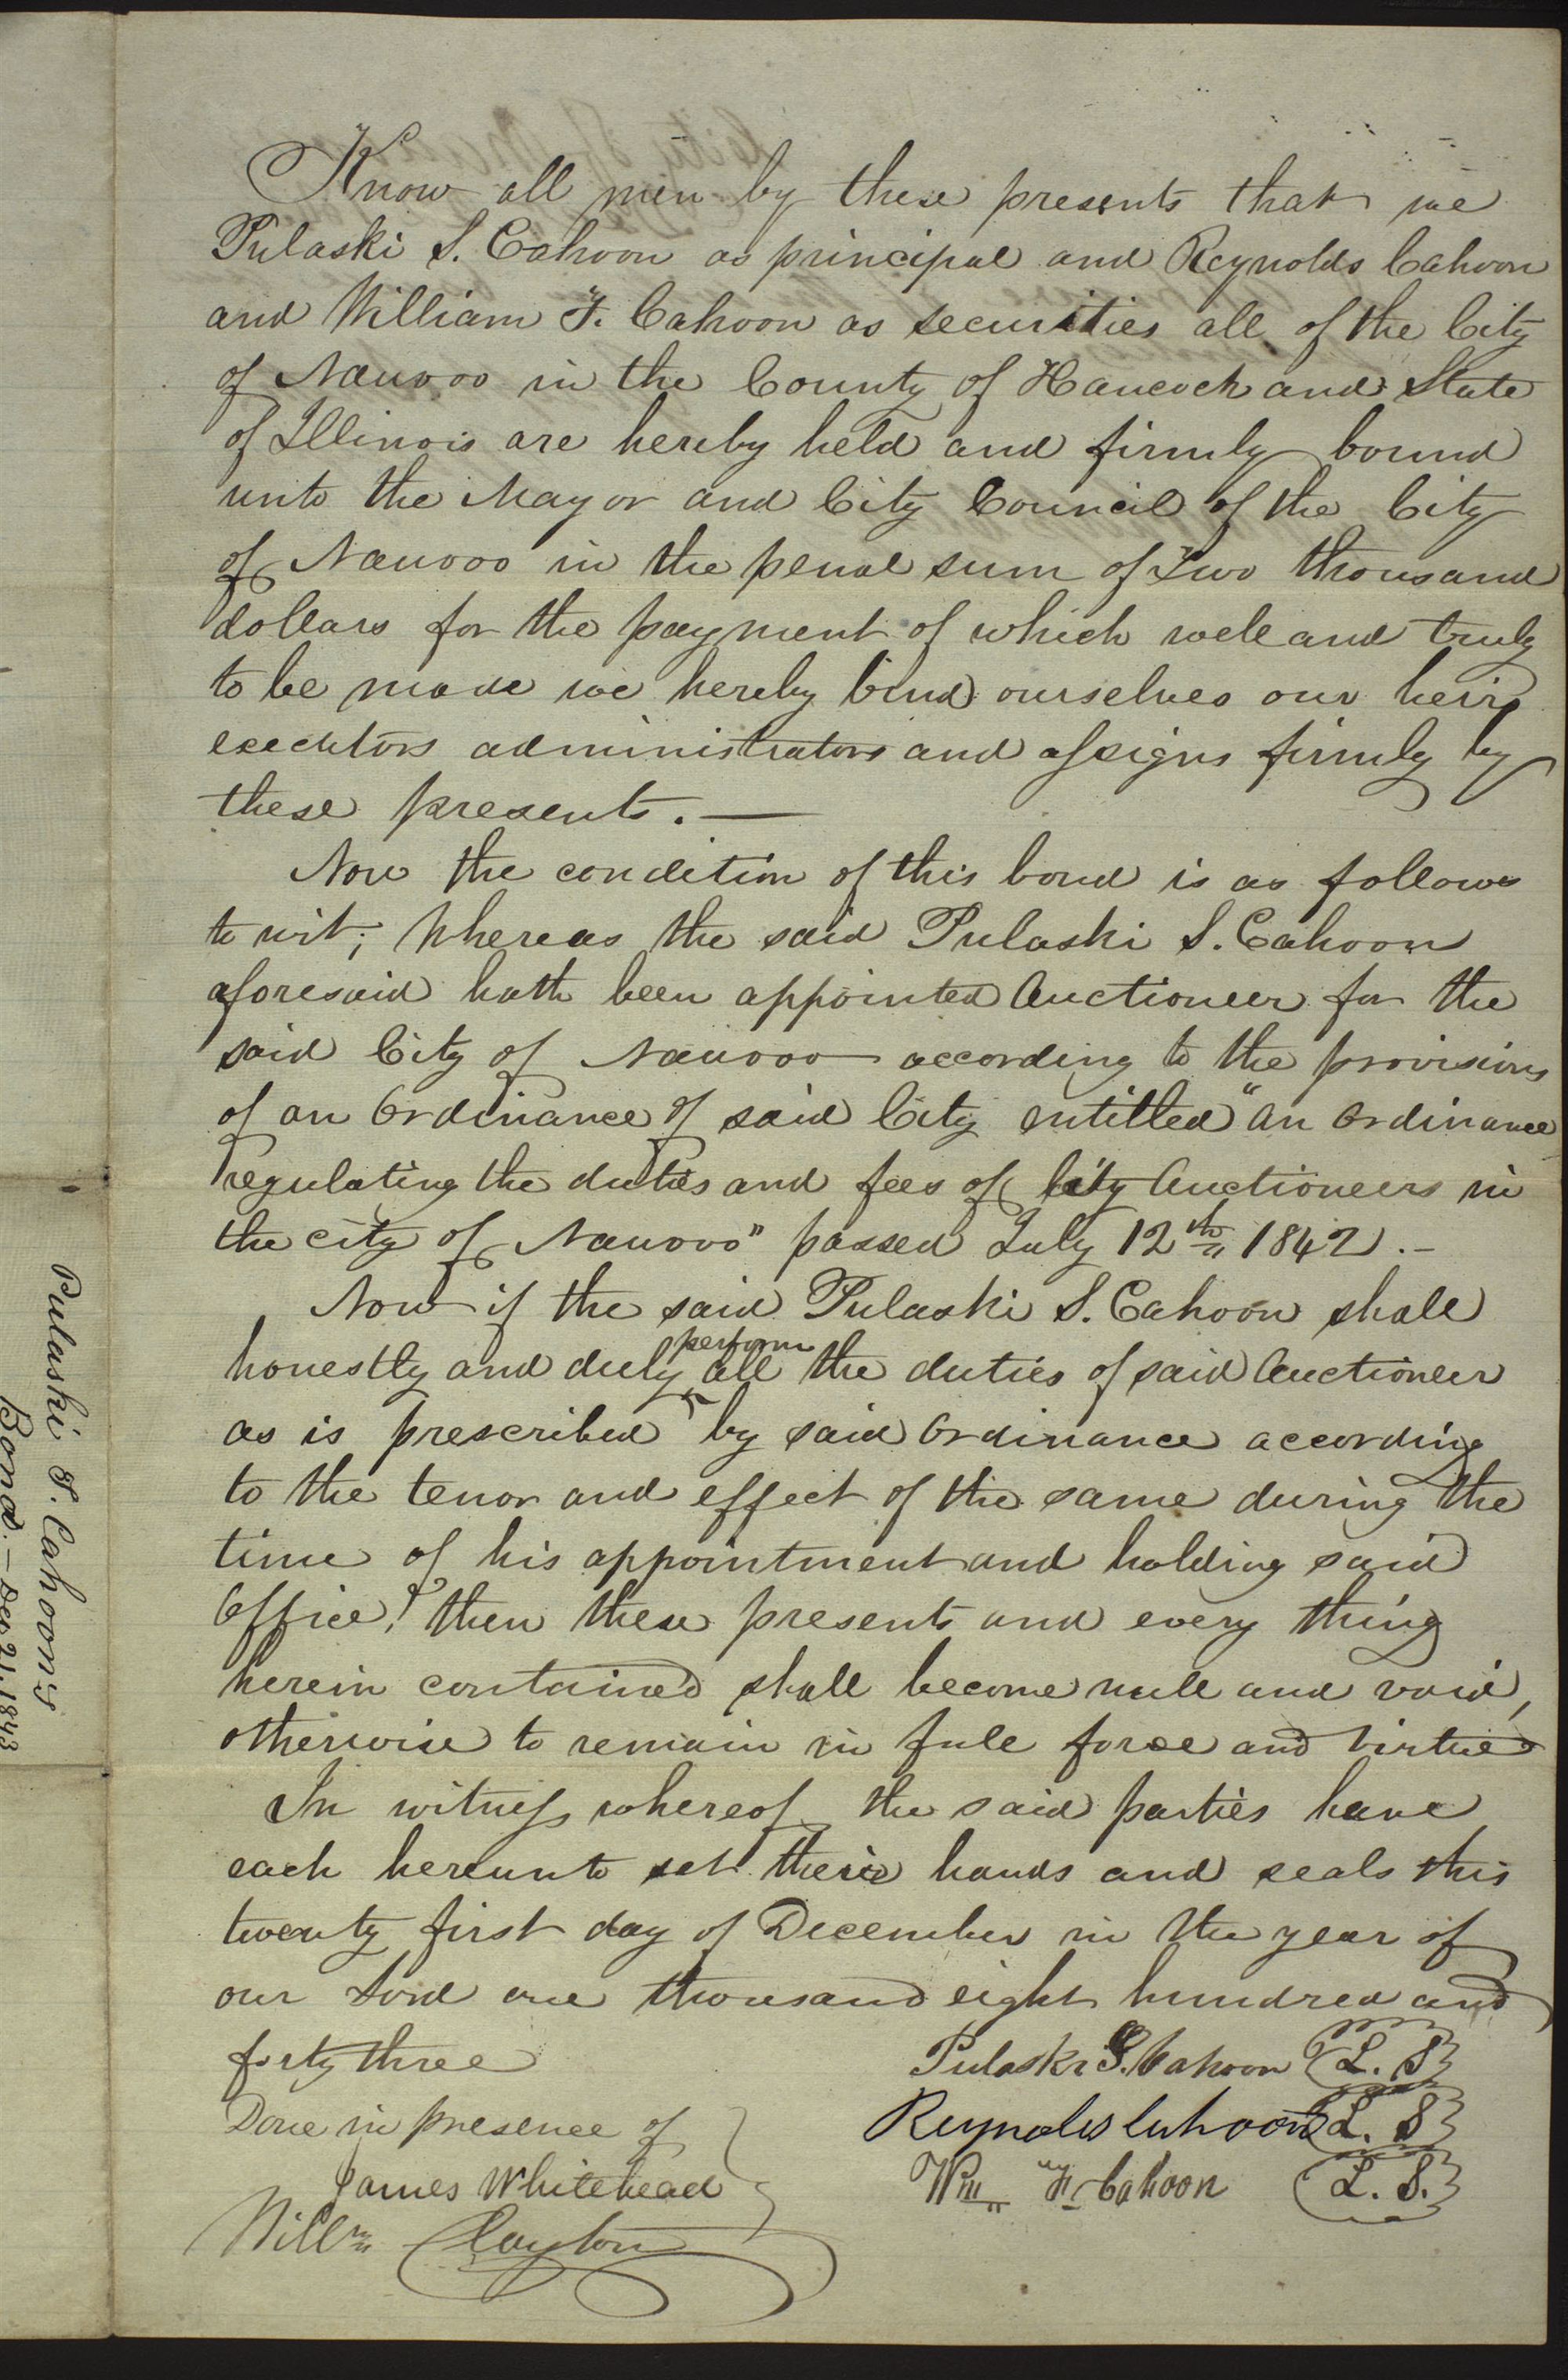 Know all men by these presents that we
Pulaski S. Cahoon as principal and Reynolds Cahoon
and William F. Cahoon as securities all of the City
of Nauvoo in the County of Hancock and State
of Illinois are hereby held and firmly bound
unto the Mayor and City Council of the City
of Nauvoo in the penal sum of Two thousand
dollars for the payment of which well and truly
to be made we hereby bind ourselves our heirs
executors administrators and assigns firmly by
these presents. —
Now the condition of this bond is as follows
to wit; Whereas the said Pulaski S. Cahoon
aforesaid hath been appointed Auctioneer for the
said City of Nauvoo according to the provisions
of an Ordinance of said City entitled "An Ordinance
regulating the duties and fees of City Auctioneers in
the city of Nauvoo" passed July 12th 1842. —
Now if the said Pulaski S. Cahoon shall
honestly and duly perform all the duties of said Auctioneer
as is prescribed by said Ordinance according
to the tenor and effect of the same during the
time of his appointment and holding said
Office! then these presents and every thing
herein contained shall become null and void,
otherwise to remain in full force and virtue
In witness whereof the said parties have
each hereunto set their hands and seals this
twenty first day of December in the year of
our Lord one thousand eight hundred and
forty three
Pulaski S. Cahoon L. S
Done in presence of
Reynolds Cahoon L. S
James Whitehead
Wm F. Cahoon L. S.
Willm Clayton
Pulaski S. Cahoons
Bond. — Dec 21. 1843